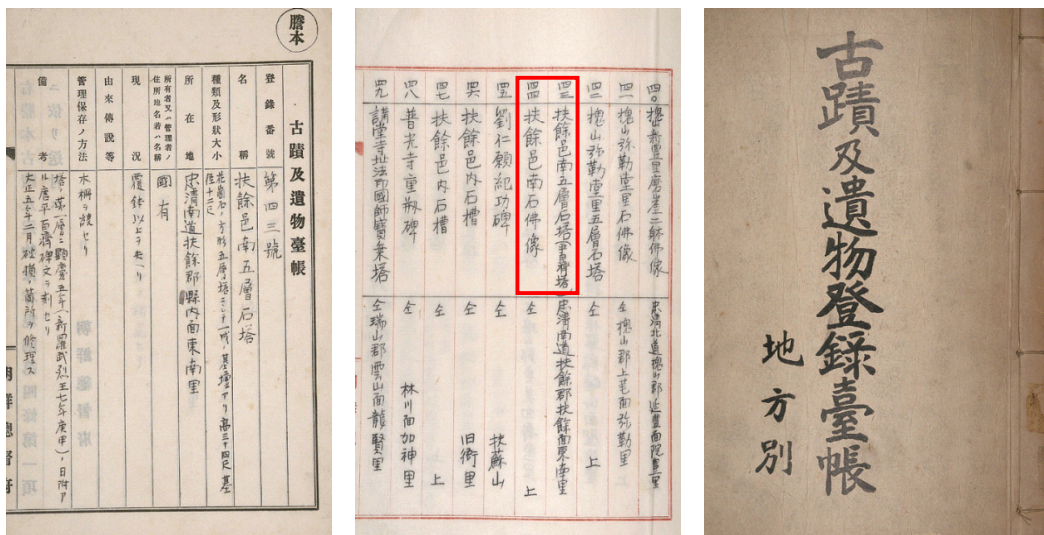 謄本
古蹟及遺物臺帳
登錄番號 第四三號
名稱 扶餘邑南五層石塔
種類及形狀大小 花崗石、方形五層塔ニシテ一成、基壇アリ高三十四尺基
十二尺
所在地 忠淸南道扶餘郡縣內面東南里
所有者又ハ管理者ノ
住所地名若ハ名稱 國有
現況 覆鉢以上ヲ失ヘリ
由來傳說等
管理保存ノ方法 木柵ヲ設セリ
備考 塔ノ第一層ニ顯慶五年(新羅武烈王七年庚申)ノ日附ア
ル唐平百濟碑文ヲ刻セリ
大正五年二月破損ノ箇所ヲ修理ス
朝鮮總督府
四〇 槐山新豐里磨崖二軀佛像 忠淸北道槐山郡延豐面院豐里
四一 槐山弥勒堂里石佛像 仝 槐山郡上芼面弥勒里
四二 槐山弥勒堂里五層石塔 仝 上
四三 扶餘邑南五層石塔 忠淸南道扶餘郡扶餘面東南里
四四 扶餘邑南石佛像 仝 上
四五 劉仁願紀功碑 仝 扶蘇山
四六 扶餘邑內石槽 仝 旧衙里
四七 扶餘邑內石槽 仝 上
四八 普光寺重刱碑 仝 林川面加神里
四九 講堂寺址法印國師寶乘塔 仝瑞山郡雲山面龍賢里
古蹟及遺物登錄臺帳
地方別